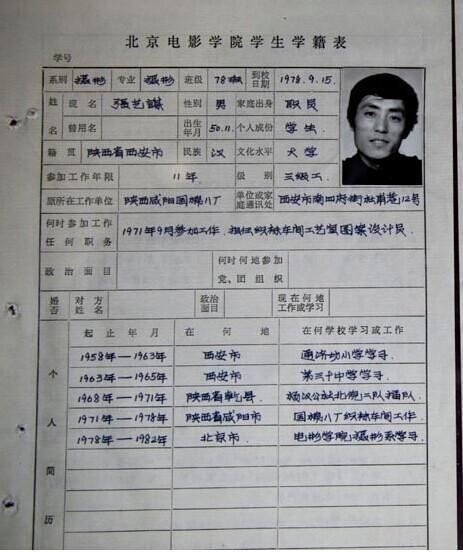 北京电影学院学生学籍表
学号
系别 摄影 专业 摄影 班级 78班 到校日期 1978.9.15.
姓名 现名 张艺谋 性别 男 家庭出身 职员
曾用名 出生年月 50.11. 个人成份 学生
籍贯 陕西省西安市 民族 汉 文化水平 大学
参加工作年限 11年 级别 三级工
原所在工作单位 陕西咸阳国棉八厂 单位或家庭通讯处 西安市南四府街社甫巷12号
何时参加工作任何职务 1971年9月参加工作．担任织袜车间工艺室图案设计员．
政治面目 何时何地参加党、团组织
婚否 对方姓名 政治面目 现在何地工作或学习
个人简历
起止年月 在何地 在何学校学习或工作
1958年—1963年 西安市 通济坊小学学习．
1963年—1965年 西安市 第三十中学学习．
1968年—1971年 陕西省乾县． 杨汉公社北倪二队插队
1971年—1978年 陕西省咸阳市 国棉八厂织袜车间工作．
1978年—1982年 北京市 电影学院摄影系学习．